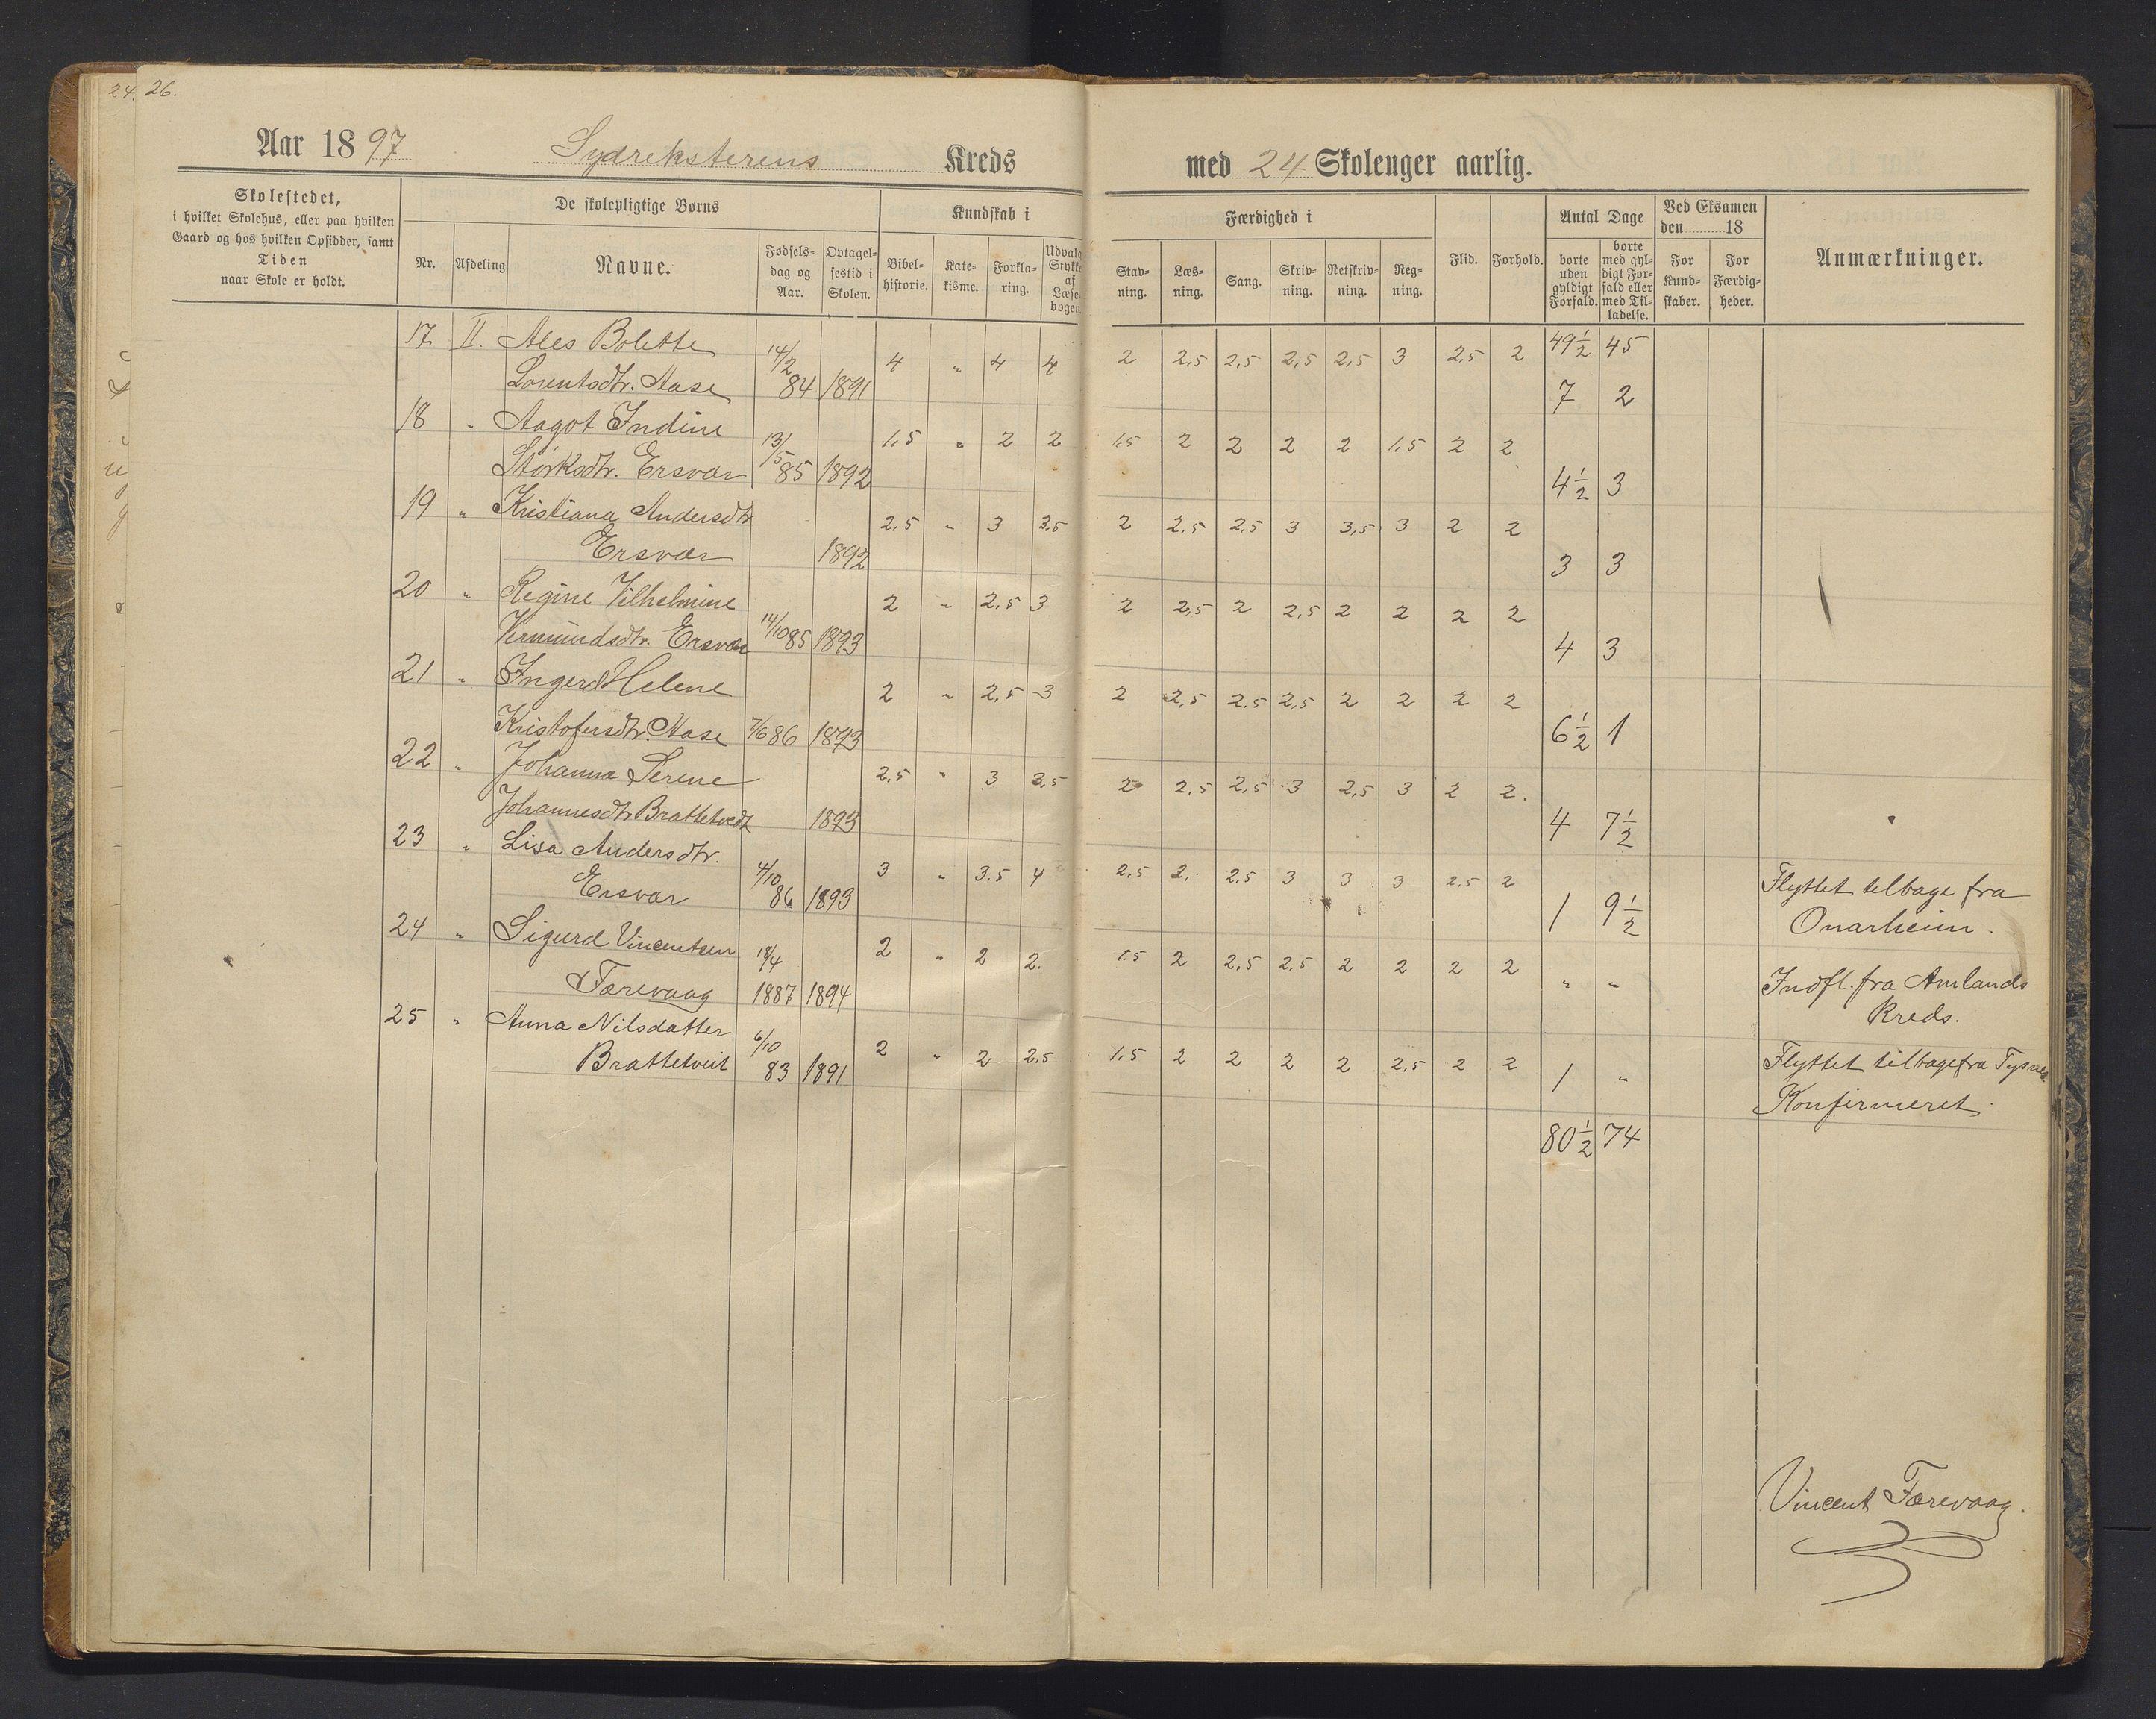 24. 26.
Aar 1897 Sydreksterens Kreds med 24 Skoleuger aarlig.
Skolestedet,
i hvilket Skolehus, eller paa hvilken
Gaard og hos hvilken Opsidder, samt
Tiden
naar Skole er holdt.
De skolepligtige Børns
Nr. Afdeling Navne. Fødsels-dag og Aar. Optagel-sestid i Skolen.
Kundskab i
Bibel-historie. Kate-kisme. Forkla-ring. Udvalg Stykke af Læse-bogen
Færdighed i
Stav-ning. Læs-ning. Sang. Skriv-ning. Retskriv-ning. Reg-ning.
Flid. Forhold.
Antal Dage
borte uden gyldigt Forfald. borte med gyl-digt For-fald eller med Til-ladelse.
Ved Eksamen den 18
For Kund-skaber. For Færdig-heder.
Anmærkninger.
17 II. Ales Bolette 14/2 4 " 4 4 2 2,5 2,5 2,5 2,5 3 2,5 2 49½ 45
Lorentsdtr. Aase 84 1891 7 2
18 " Aagot Indine 13/5 1,5 " 2 2 1.5 2 2 2 2 1,5 2 2
Størksdtr. Ersvær 85 1892 4½ 3
19 " Kristiana Andersdtr 2,5 " 3 3.5 2 2,5 2,5 3 3,5 3 2 2
Ersvær 1892 3 3
20 " Regine Vilhelmine 2 " 2,5 3 2 2,5 2 2,5 2 2 2 2
Vermundsdtr. Ersvær 14/10 85 1893 4 3
21 " Ingerd Helene 2 " 2,5 3 2 2,5 2.5 2,5 2 2 2 2
Kristofersdtr. Aase 7/6 86 1893 6½ 1
22 " Johanna Serene 2,5 " 3 3,5 2 2,5 2,5 3 2,5 3 2 2.
Johannesdtr Brattetvedt 1893 4 7½
23 " Lisa Andersdtr. 4/10 3 " 3.5 4 2,5 2,. 2,5 3 3 3 2,5 2 Flyttet tilbage fra
Ersvær 86 1893 1 9½ Onarheim.
24 " Sigurd Vincentsen 18/4 2 " 2 2. 1.5 2 2,5 2,5 2 2 2 2 Indfl. fra Amlands
Færevaag 1887 1894 " " Kreds.
25 " Anna Nilsdatter 6/10 2 " 2 2.5 1.5 2 2 2 2 2,5 2 2 Flyttet tilbage fra Tysnes
Brattetveit 83 1891 1 " Konfirmeret.
80½ 74
Vincent Færevaag.